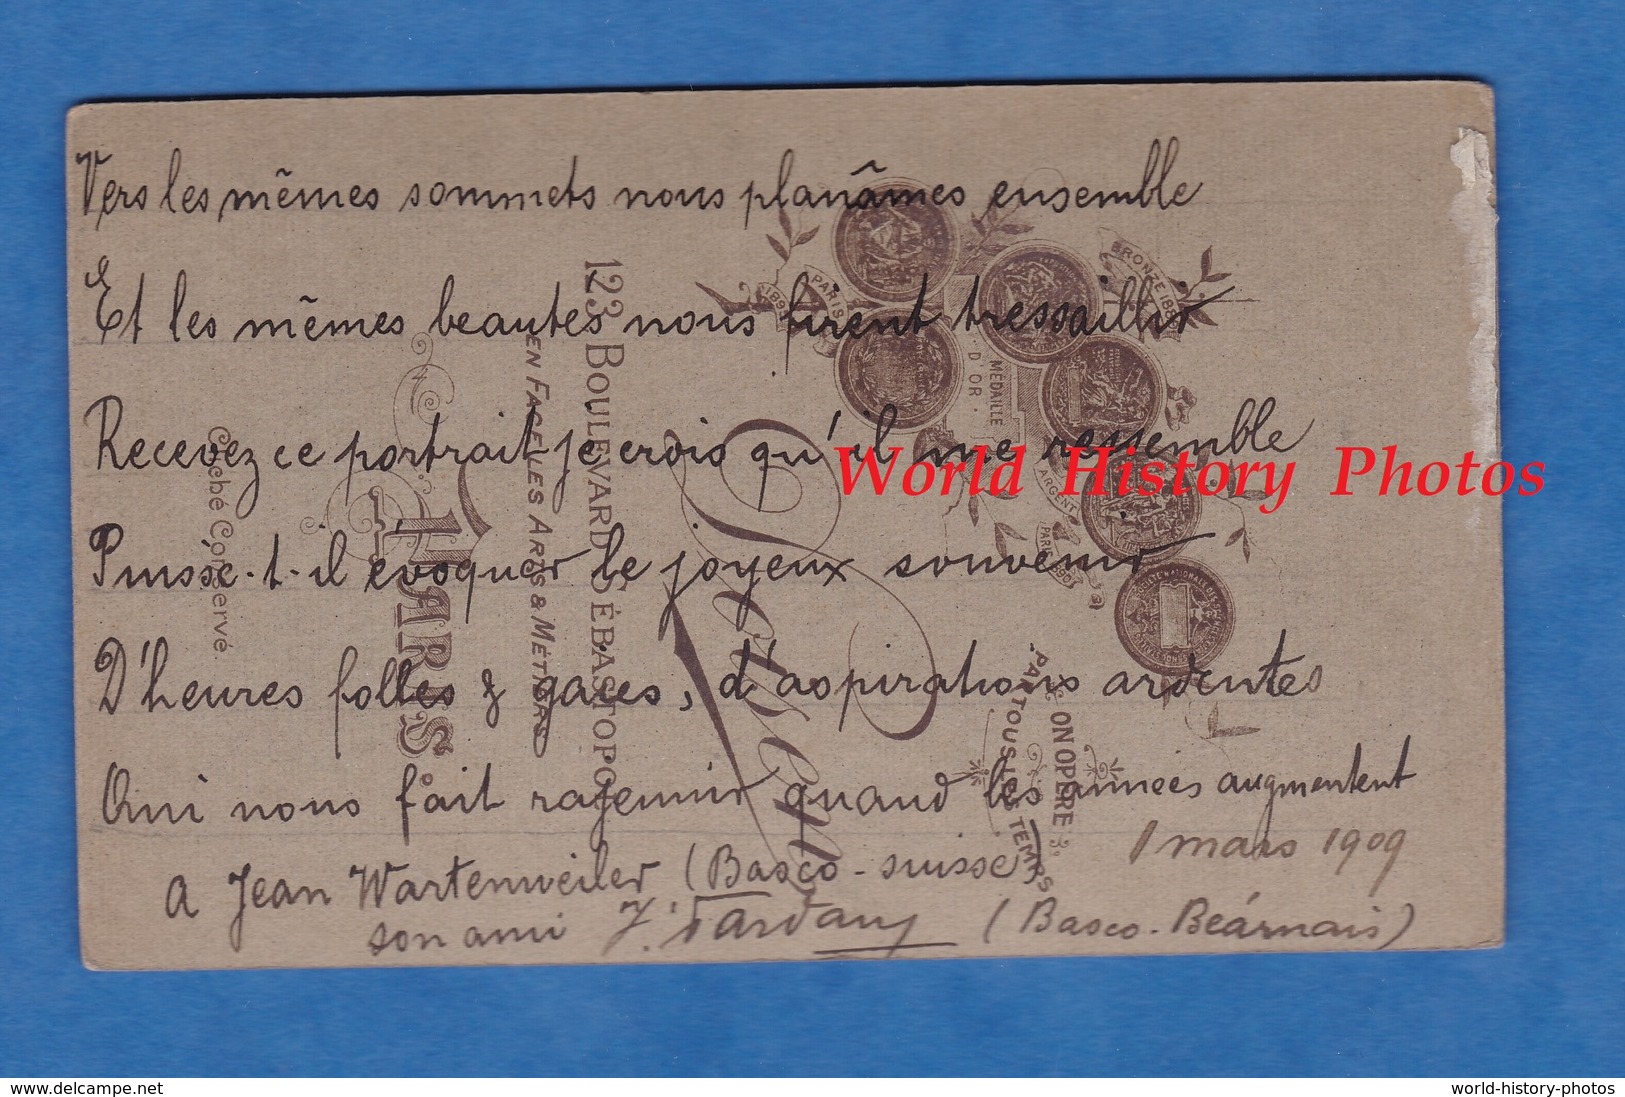 Vers les mêmes sommets nous planâmes ensemble
Et les mêmes beautés nous firent tressaillir
Recevez ce portrait je crois qu'il me ressemble
Puisse-t-il évoquer le joyeux souvenir
D'heures folles & gaces, d'aspirations ardentes
Qui nous fait rajeunir quand les années augmentent
1 mars 1909
A Jean Wartenweiler (Basco-suisse)
son ami J. Tardany (Basco-Béarnais)
World History Photos
123 BOULEVARD SÉBASTOPOL
EN FACE LES ARTS & MÉTIERS
PARIS
Cliché Conservé.
ON OPÈRE
PAR TOUS LES TEMPS
MÉDAILLE
D'OR
PARIS
ARGENT
PARIS 1890
BRONZE 188
189
www.delcampe.net
world-history-photos